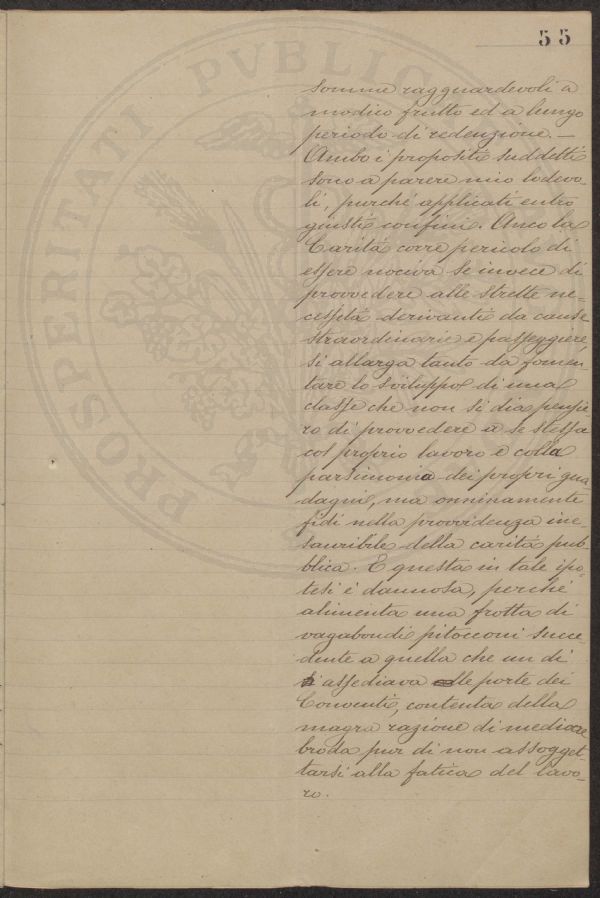 55
PROSPERITATI PVBLIC
somme ragguardevoli a
modico frutto ed a lungo
periodo di redenzione. —
Ambo i propositi suddetti
sono a parere mio lodevo-
li, purché applicati entro
giusti confini. Anco la
Carità corre pericolo di
essere nociva se invece di
provvedere alle strette ne-
cessità derivanti da cause
straordinarie e passeggiere,
si allarga tanto da fomen
tare lo sviluppo di una
classe che non si dia pensie
ro di provvedere a se stessa
col proprio lavoro e colla
parsimonia dei propri gua
dagni, ma onninamente
fidi nella provvidenza ine
sauribile della carità pub-
blica. E questa in tale ipo-
tesi è dannosa, perché
alimenta una frotta di
vagabondi pitocconi succe-
dente a quella che un dì
assediava le porte dei
Conventi, contenta della
magra razione di mediocre
broda pur di non assogget-
tarsi alla fatica del lavo-
ro.